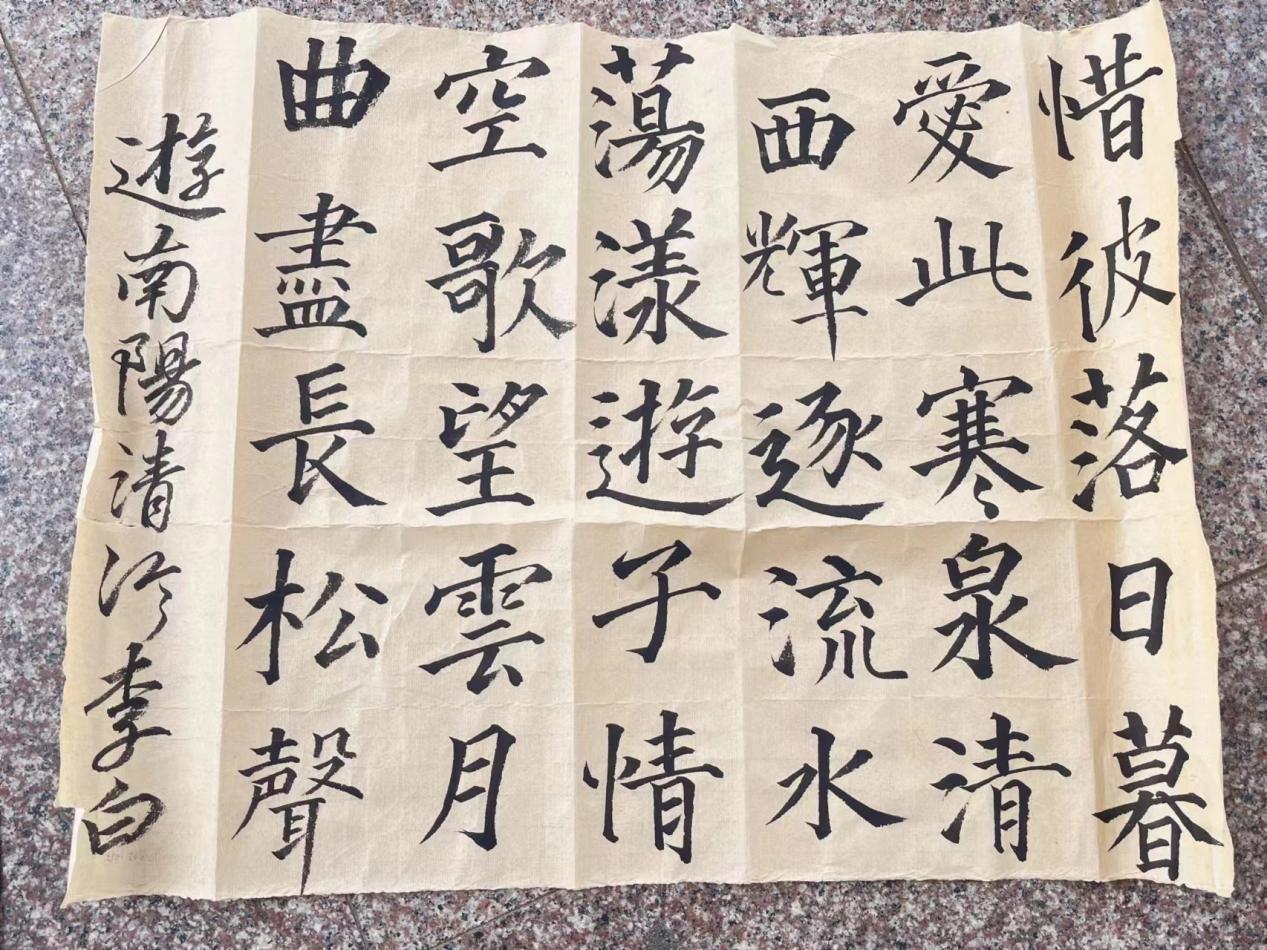 惜彼落日暮
愛此寒泉清
西輝逐流水
蕩漾遊子情
空歌望雲月
曲盡長松聲
遊南陽清泠李白